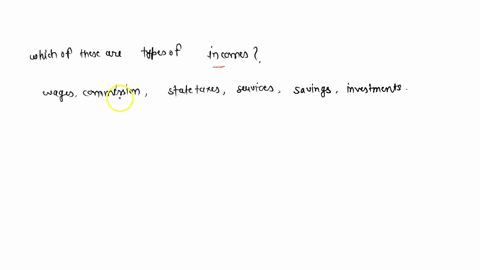 which of these are types of incomes?
wages, commission, state taxes, services, savings, investments.